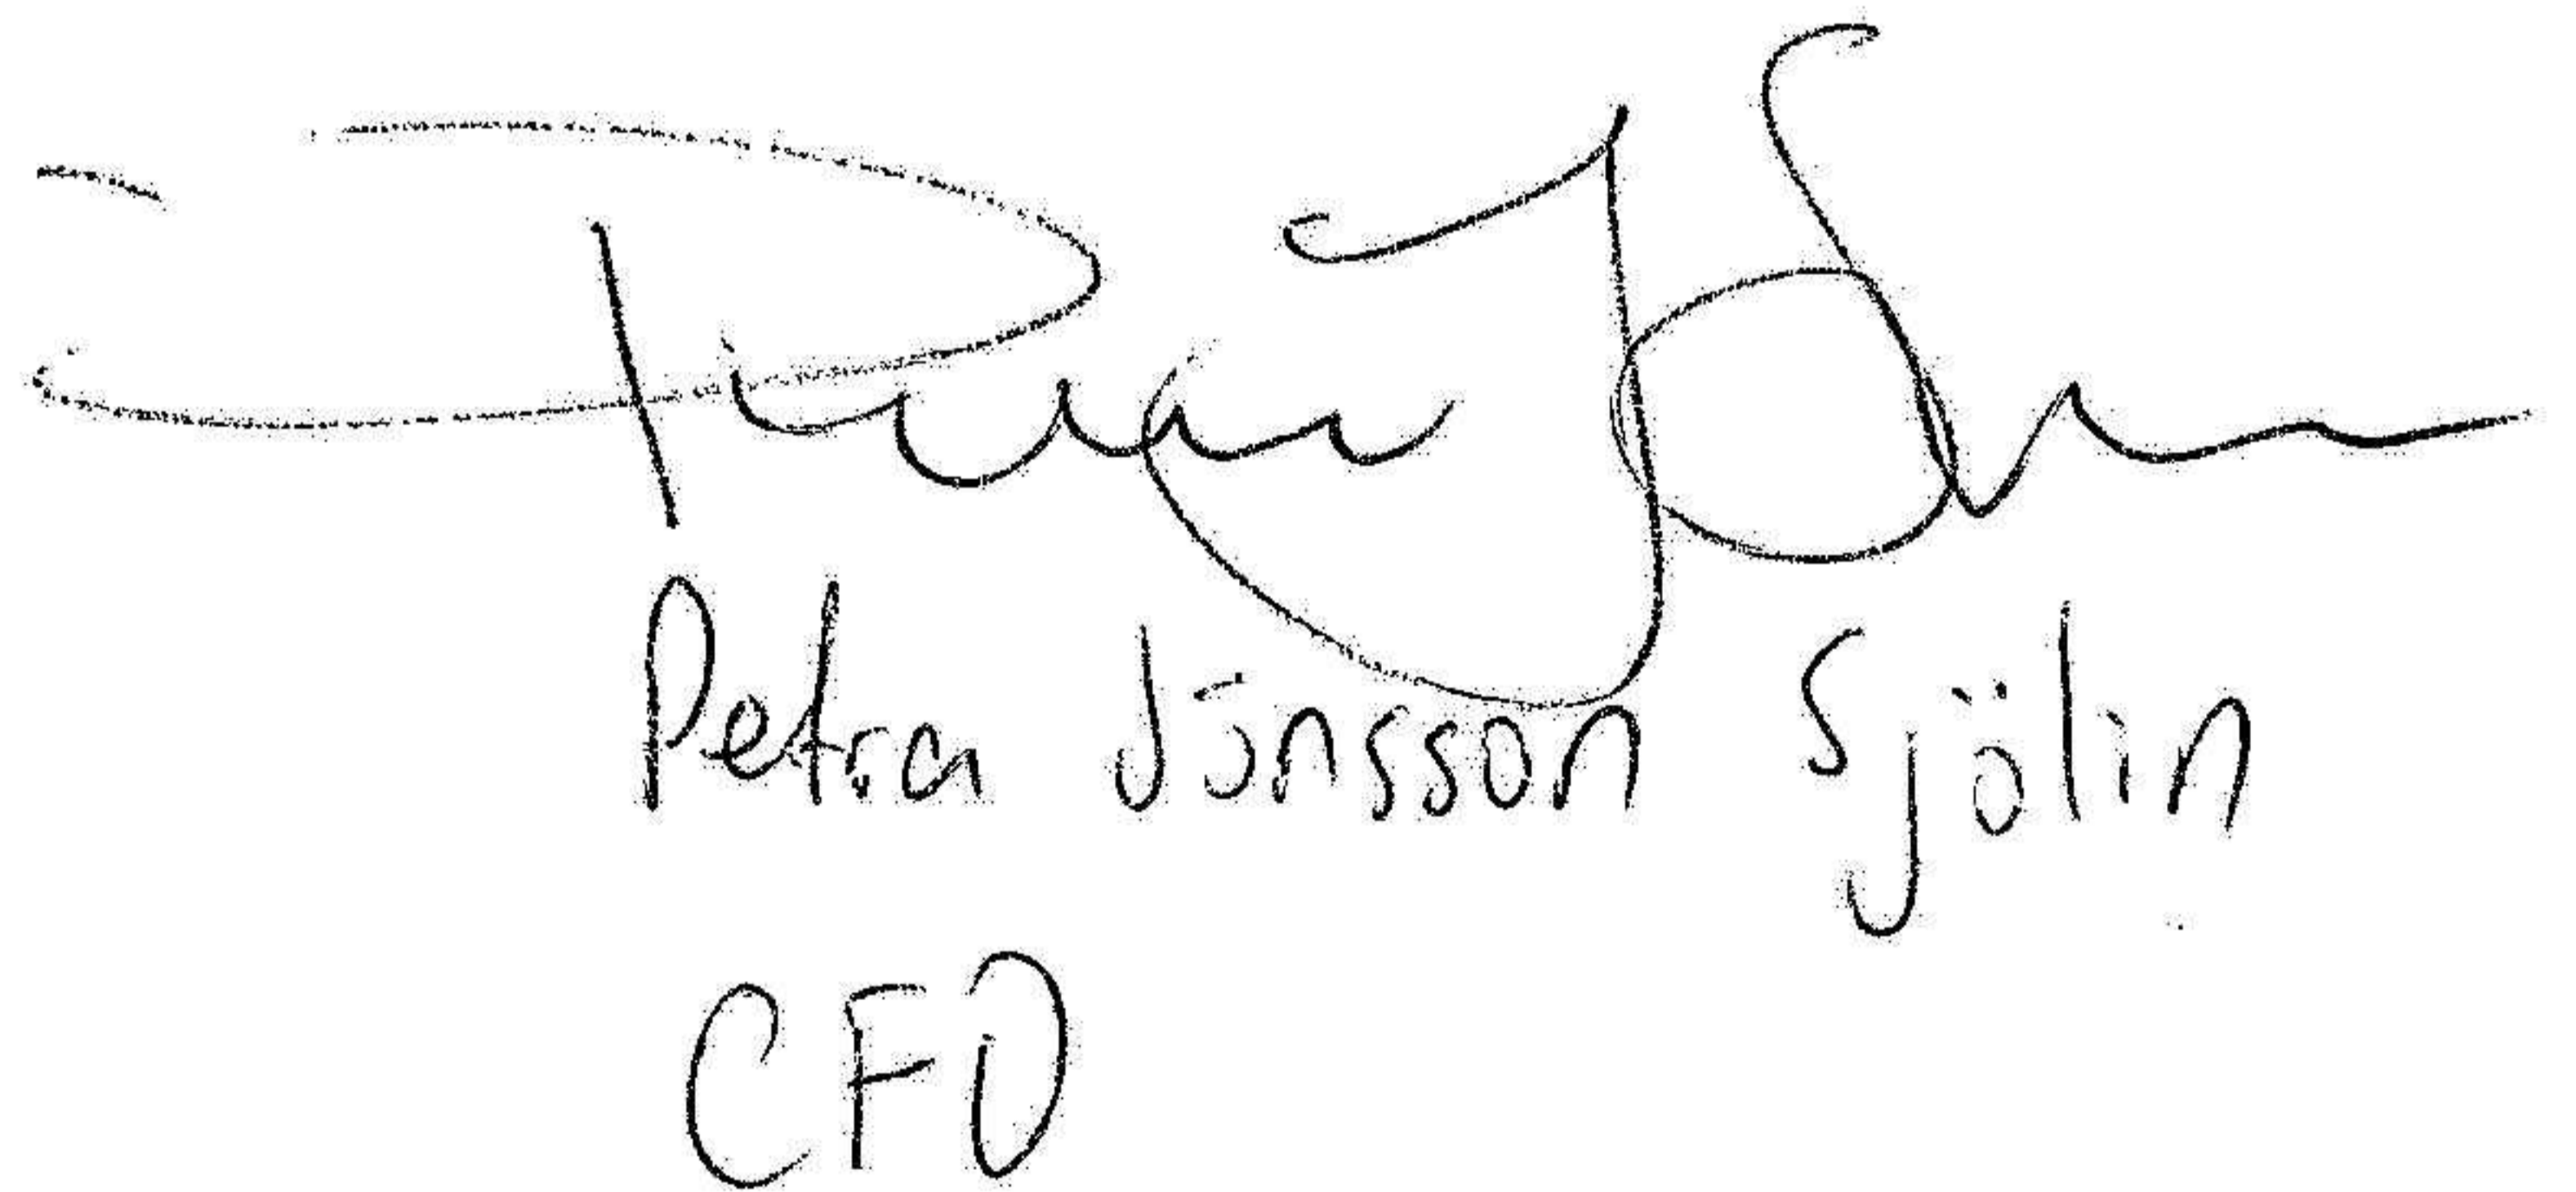 Petra Jönsson Sjölin
CFO